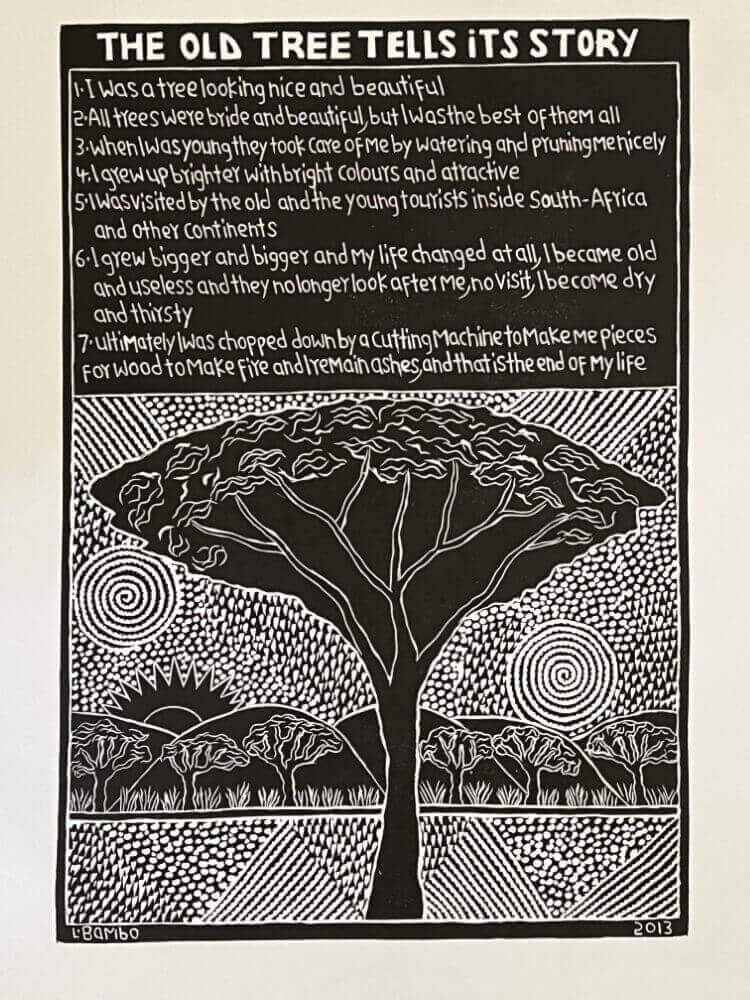 THE OLD TREE TELLS iTS STORY
1. I was a tree looking nice and beautiful
2. All trees were bride and beautiful, but I was the best of them all
3. when I was young they took care of me by watering and pruning me nicely
4. I grew up brighter with bright colours and attractive
5. I was visited by the old and the young tourists inside South-Africa
and other continents
6. I grew bigger and bigger and my life changed at all, I became old
and useless and they no longer look after me, no visit, I become dry
and thirsty
7. ultimately I was chopped down by a cutting Machine to Make me pieces
for wood to Make fire and I remain ashes, and that is the end of My life
L.BAMbo
2013